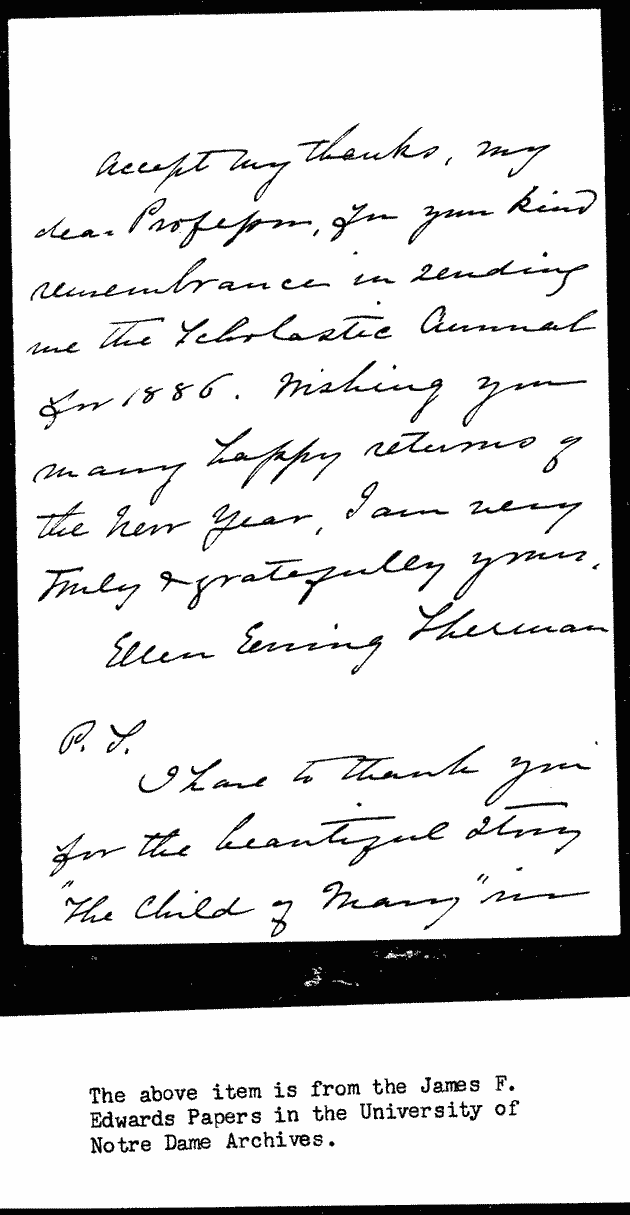 Accept my thanks, my
dear Professor, for your kind
remembrance in sending
me the Scholastic Annual
for 1886. Wishing you
many happy returns of
the New Year, I am very
truly & gratefully yours,
Ellen Ewing Sherman
P. S.
I have to thank you
for the beautiful story
"The Child of Mary" in
The above item is from the James F.
Edwards Papers in the University of
Notre Dame Archives.